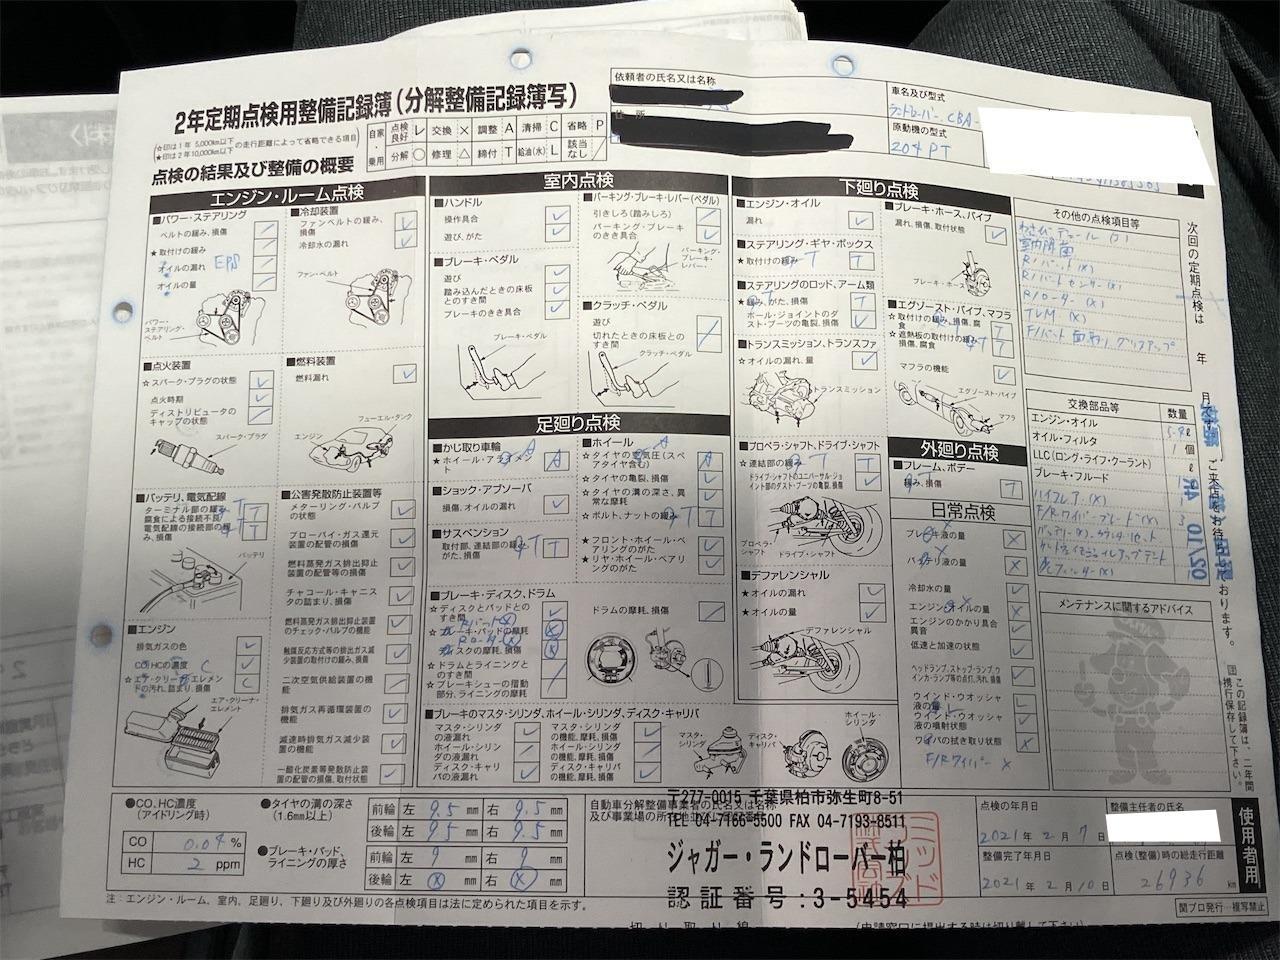 2年定期点検用整備記録簿(分解整備記録簿写)
☆印は1年 5,000km以下の走行距離によって省略できる項目
★印は2年10,000km以下
自家・乗用
点検良好 レ 交換 × 調整 A 清掃 C 省略 P
分解 ○ 修理 △ 締付 T 給油(水) L 該当なし /
依頼者の氏名又は名称
住所
車名及び型式
ランドローバー. CBA-
原動機の型式
204PT
点検の結果及び整備の概要
エンジン・ルーム点検
■パワー・ステアリング
ベルトの緩み、損傷
★取付けの緩み
オイルの漏れ EPS
オイルの量
パワー・ステアリング・ベルト
■冷却装置
ファンベルトの緩み、損傷
冷却水の漏れ
ファン・ベルト
■点火装置
☆スパーク・プラグの状態
点火時期
ディストリビュータのキャップの状態
スパーク・プラグ
■燃料装置
燃料漏れ
フューエル・タンク
エンジン
■バッテリ、電気配線
ターミナル部の緩み、腐食による接続不良 T
電気配線の接続部の緩み、損傷 T
バッテリ
■公害発散防止装置等
メターリング・バルブの状態
ブローバイ・ガス還元装置の配管の損傷
燃料蒸発ガス排出抑止装置の配管等の損傷
チャコール・キャニスタの詰まり、損傷
燃料蒸発ガス排出抑止装置のチェック・バルブの機能
触媒反応方式等の排出ガス減少装置の取付けの緩み、損傷
二次空気供給装置の機能
排気ガス再循環装置の機能
減速時排気ガス減少装置の機能
一酸化炭素等発散防止装置の配管の損傷、取付状態
■エンジン
排気ガスの色
CO、HCの濃度
☆エア・クリーナ・エレメントの汚れ、詰まり、損傷 C
エア・クリーナ・エレメント
室内点検
■ハンドル
操作具合
遊び、がた
■ブレーキ・ペダル
遊び
踏み込んだときの床板とのすき間
ブレーキのきき具合
ブレーキ・ペダル
■パーキング・ブレーキ・レバー(ペダル)
引きしろ(踏みしろ)
パーキング・ブレーキのきき具合
パーキング・ブレーキ・レバー
■クラッチ・ペダル
遊び
切れたときの床板とのすき間
クラッチ・ペダル
足廻り点検
■かじ取り車輪
★ホイール・アライメント A
■ショック・アブソーバ
損傷、オイルの漏れ
■サスペンション
取付部、連結部の緩み、がた、損傷 T
■ホイール
☆タイヤの空気圧(スペアタイヤ含む) A
☆タイヤの亀裂、損傷
☆タイヤの溝の深さ、異常な摩耗
☆ボルト、ナットの緩み T
★フロント・ホイール・ベアリングのがた
★リヤ・ホイール・ベアリングのがた
■ブレーキ・ディスク、ドラム
☆ディスクとパッドとのすき間
☆ブレーキ・パッドの摩耗
ディスクの摩耗、損傷
☆ドラムとライニングとのすき間
☆ブレーキシューの摺動部分、ライニングの摩耗
ドラムの摩耗、損傷
■ブレーキのマスタ・シリンダ、ホイール・シリンダ、ディスク・キャリパ
マスタ・シリンダの液漏れ
ホイール・シリンダの液漏れ
ディスク・キャリパの液漏れ
マスタ・シリンダの機能、摩耗、損傷
ホイール・シリンダの機能、摩耗、損傷
ディスク・キャリパの機能、摩耗、損傷
マスタ・シリンダ
ディスク・キャリパ
ホイール・シリンダ
下廻り点検
■エンジン・オイル
漏れ
■ステアリング・ギヤ・ボックス
★取付けの緩み T
■ステアリングのロッド、アーム類
★緩み、がた、損傷 T
ボール・ジョイントのダスト・ブーツの亀裂、損傷
■トランスミッション、トランスファ
☆オイルの漏れ、量
トランスミッション
■プロペラ・シャフト、ドライブ・シャフト
☆連結部の緩み T
ドライブ・シャフトのユニバーサル・ジョイント部のダスト・ブーツの亀裂、損傷
プロペラ・シャフト
ドライブ・シャフト
■デファレンシャル
★オイルの漏れ
★オイルの量
デファレンシャル
■ブレーキ・ホース、パイプ
漏れ、損傷、取付状態
ブレーキ・ホース
■エグゾースト・パイプ、マフラ
☆取付けの緩み、損傷、腐食 T
★遮熱板の取付けの緩み、損傷、腐食 T
マフラの機能
エグゾースト・パイプ
マフラ
外廻り点検
■フレーム、ボデー
緩み、損傷 T
日常点検
ブレーキ液の量 ×
バッテリ液の量 ×
冷却水の量
エンジンオイルの量 ×
エンジンのかかり具合、異音
低速と加速の状態
ヘッドランプ、ストップ・ランプ、ウインカ・ランプなどの点灯、汚れ、損傷
ウインド・ウオッシャ液の量 L
ウインド・ウオッシャの噴射状態
ワイパの拭き取り状態 ×
F/Rワイパー ×
その他の点検項目等
室内除菌
R/パット(×)
R/パットセンサー(×)
R/ローター(×)
TLM (×)
F/パット面取り. グリスアップ
交換部品等 数量
エンジン・オイル
オイル・フィルタ 1個
LLC(ロング・ライフ・クーラント) ℓ
ブレーキ・フルード
F/Rワイパーブレード(×) 3
メンテナンスに関するアドバイス
次回の定期点検は 年 月です。ご来店をお待ちしております。
この記録簿は、二年間携行保存して下さい。
使用者用
●CO、HC濃度
(アイドリング時)
CO 0.04 %
HC 2 ppm
●タイヤの溝の深さ
(1.6mm以上)
前輪 左 9.5 mm 右 9.5 mm
後輪 左 9.5 mm 右 9.5 mm
●ブレーキ・パッド、ライニングの厚さ
前輪 左 9 mm 右 9 mm
後輪 左 ⊗ mm 右 ⊗ mm
自動車分解整備事業者の氏名又は名称及び事業場の所在地
〒277-0015 千葉県柏市弥生町8-51
TEL 04-7166-5500 FAX 04-7193-8511
ジャガー・ランドローバー柏
認証番号:3-5454
点検の年月日
2021年2月7日
整備主任者の氏名
整備完了年月日
2021年2月10日
点検(整備)時の総走行距離
26936 km
注:エンジン・ルーム、室内、足廻り、下廻り及び外廻りの各点検項目は法に定められた項目を示す。
関プロ発行…複写禁止
切り取り線
(申請窓口に提出する時は切り離して下さい)